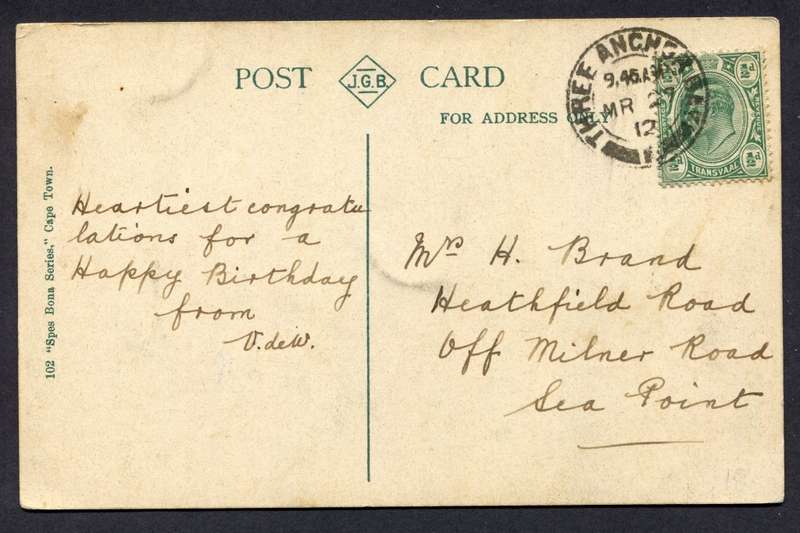 POST J.G.B. CARD
FOR ADDRESS ONLY
THREE ANCHOR BAY
9.45 AM
MR
12
½d
TRANSVAAL
102 "Spes Bona Series," Cape Town.
Heartiest congratu
lations for a
Happy Birthday
from
V. de W.
Mrs H. Brand
Heathfield Road
Off Milner Road
Sea Point